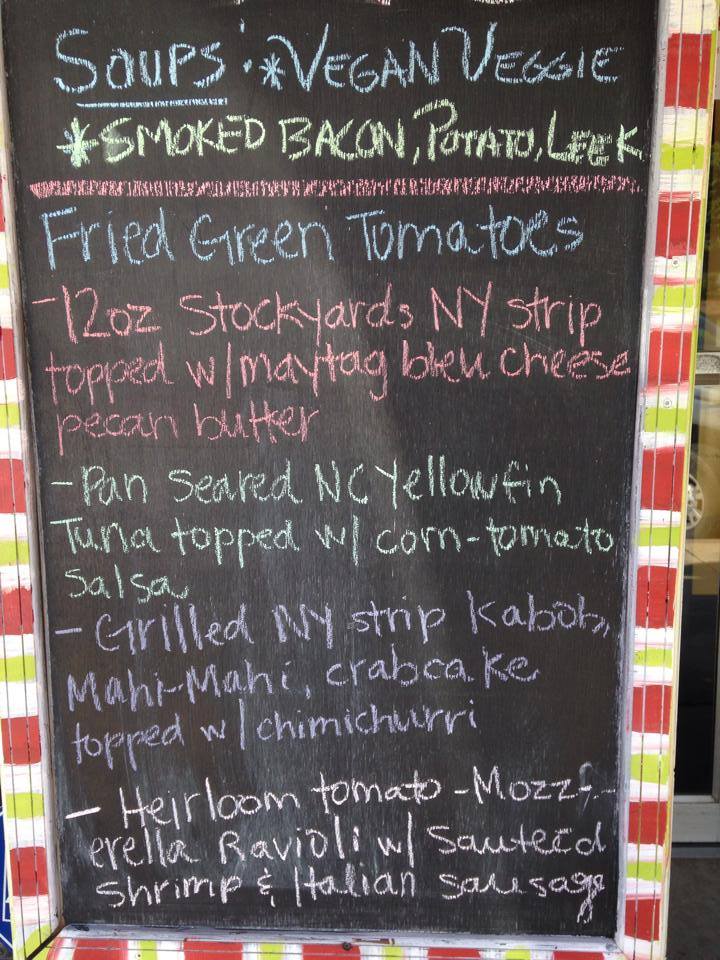 Soups: *Vegan Veggie
*Smoked Bacon, Potato, Leek
Fried Green Tomatoes
-12oz Stockyards NY strip
topped w/maytag bleu cheese
pecan butter
-Pan Seared NC Yellowfin
Tuna topped w/ corn-tomato
salsa
- Grilled NY strip Kabob,
Mahi-Mahi, crabcake
topped w/chimichurri
- Heirloom tomato-Mozz-
erella Ravioli w/ Sauteéd
shrimp & Italian sausage